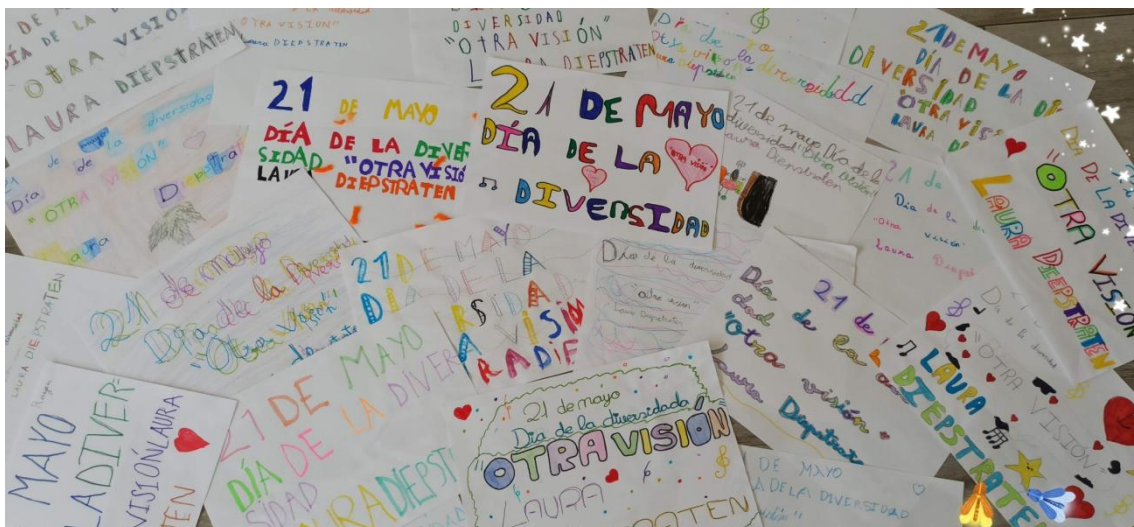 DÍA DE LA
"OTRA VISIÓN
LAURA DIEPSTRATEN
OTRA VISION"
DIEPSTRATEN
DIVERSIDAD
"OTRA VISIÓN"
DIEPSTRATEN
Día de la diversidad
21 DE MAYO
DÍA DE LA
DIVERSIDAD
"OTRA VIS
LAURA
de la diversidad
Día
"OTRA VISIÓN"
21 DE MAYO
DÍA DE LA DIVER
SIDAD "OTRA VISIÓ
DIEPSTRATEN
21 DE MAYO
DÍA DE LA
OTRA VISIÓN
DIVERSIDAD
21 de mayo Día de la
diversidad "Otra visión"
Laura Diepstraten
21 de
Día de la
"Otra visión"
Laura
DE LA DIVE
OTRA VISIÓN
LAURA DIEPSTRATEN
21 de mayo
Día de la
"Otra visión"
21 DE MAYO
DÍA DE LA
ERSIDAD
RA VISIÓN
RA DIE
Día de la diversidad
"otra visión
Laura Diepstraten
21 de
Día de la
dad
"Otra visión"
Laura
Día de la diversidad
"OTRA
VISIÓN"
LAURA
DIEPSTRATE
LAURA DIEPSTRATEN
MAYO
LA DIVER=
VISIÓN LAURA
TEN
21 DE MAYO
DÍA DE LA DIVER
SIDAD
URA DIEPST
21 de mayo
Día de la diversidada
"OTRA VISIÓN
LAURA
RATEN
DE MAYO
A DE LA DIVERSIDAD